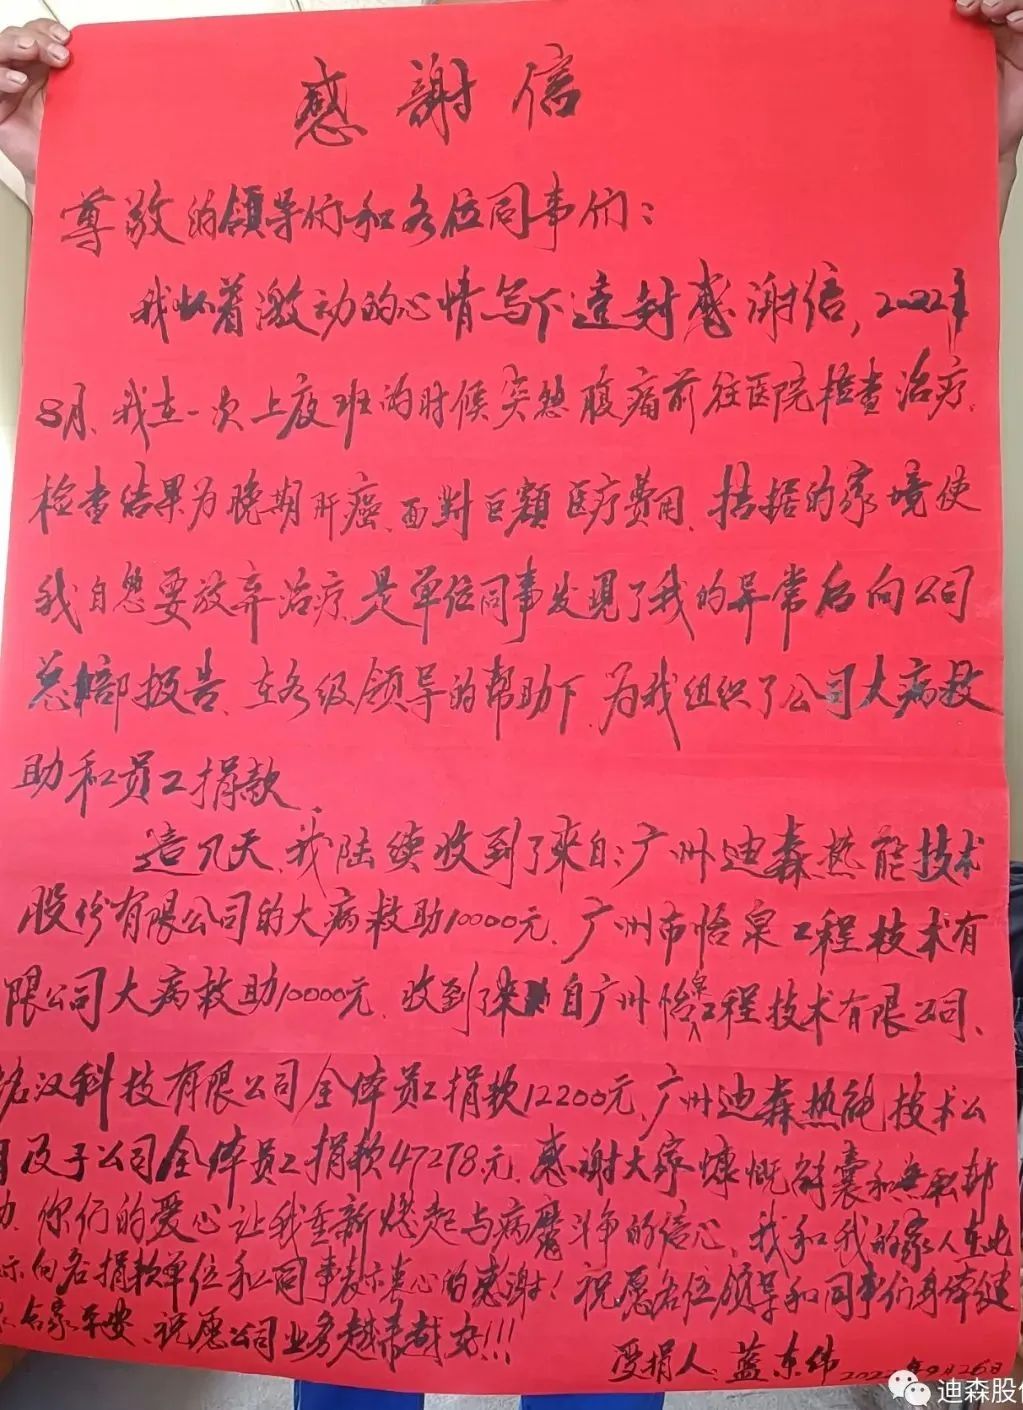 感謝信
尊敬的领导们和各位同事们：
我怀着激动的心情写下這封感谢信，2022年
8月、我在一次上夜班的时候突然腹痛前往医院检查治疗.
检查结果为晚期肝癌、面對巨額医疗费用、拮据的家境使
我自想要放弃治疗、是单位同事发現了我的异常后向公司
总部报告、在各级领导的帮助下、为我组织了公司大病救
助和员工捐款.
這几天、我陆续收到了来自：广州迪森热能技术
股份有限公司的大病救助10000元、广州市怡泉工程技术有
限公司大病救助10000元、收到了来自广州怡泉工程技术有限公司、
汉科技有限公司全体员工捐款12200元、广州迪森热能技术公
司及子公司全体员工捐款47278元、感谢大家慷慨解囊和無私帮
助、你们的爱心让我重新燃起与病魔斗争的信心、我和我的家人在此
向各捐款单位和同事表示衷心的感谢！祝愿各位领导和同事们身体健
合家平安、祝愿公司业务越来越
受捐人、蓝东伟 2022年9月26日
迪森股